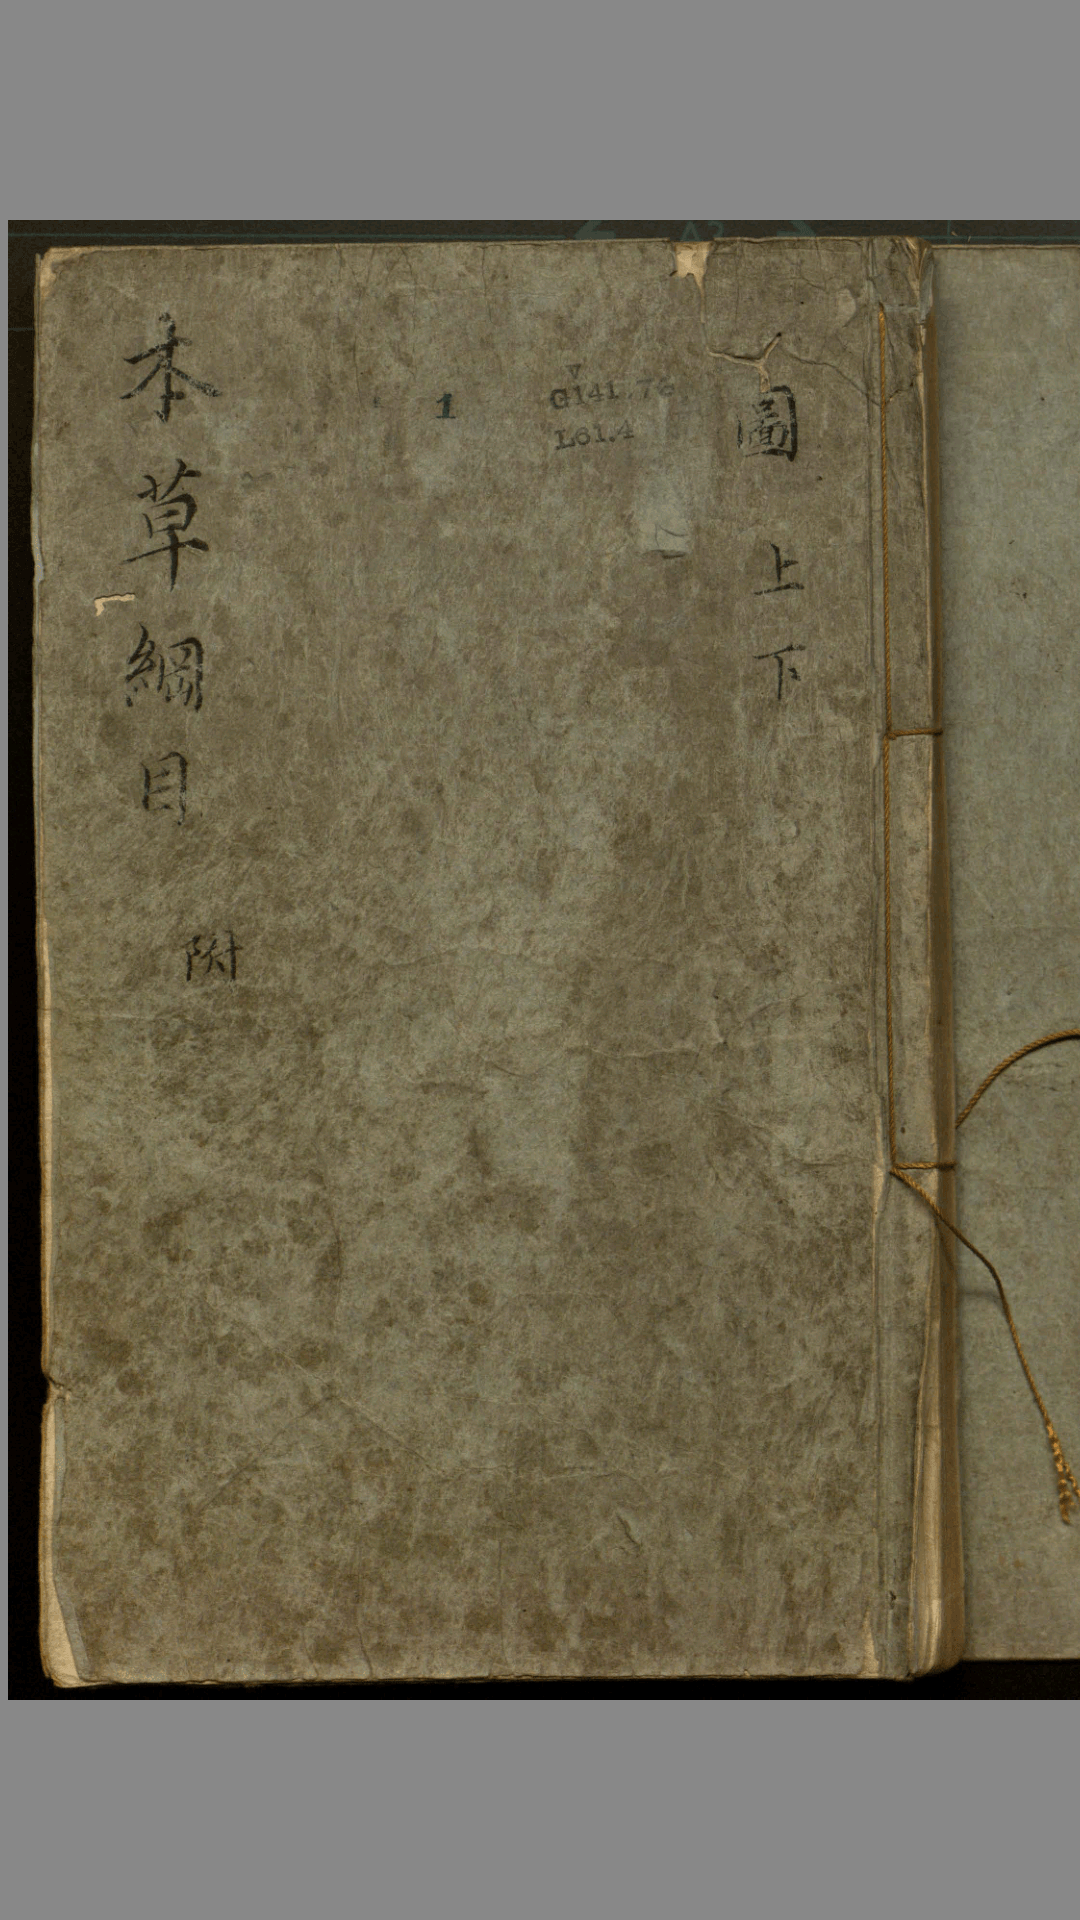 圖上下
V
G141.7c
L61.4
1
本草綱目
附